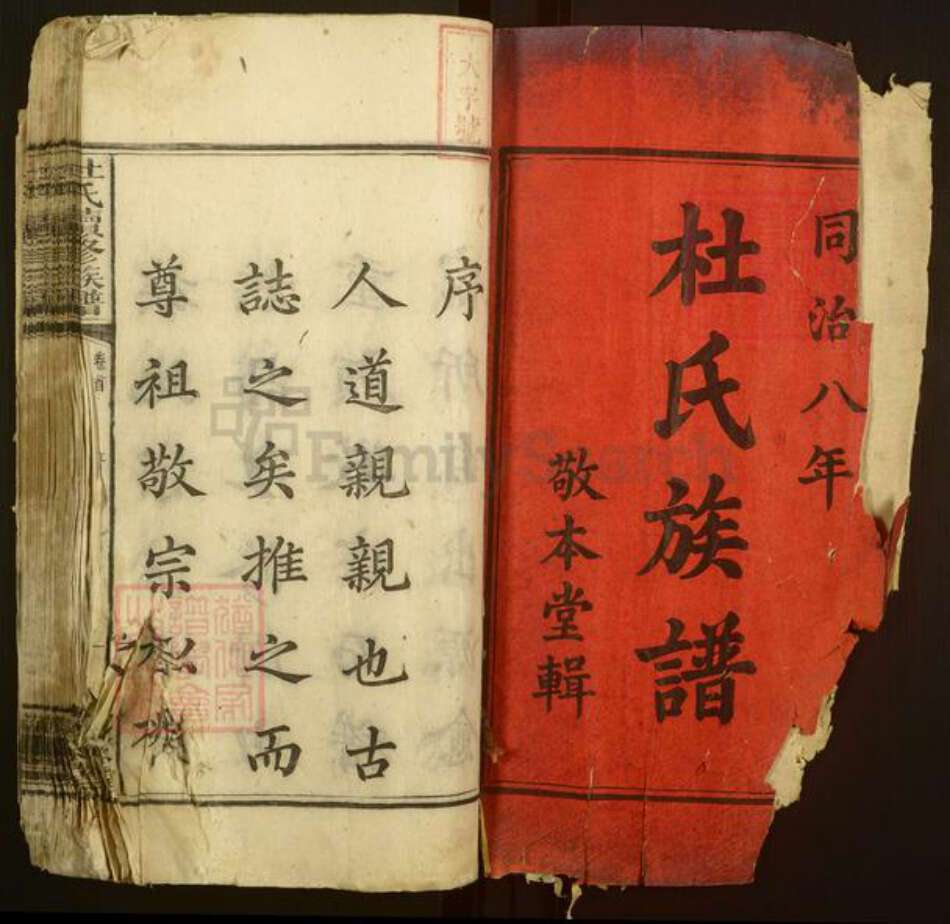 同治八年
杜氏族譜
敬本堂輯
大字號
序
人道親親也古
誌之矣推之而
尊祖敬宗
杜氏續修族譜
卷首
FamilySearch